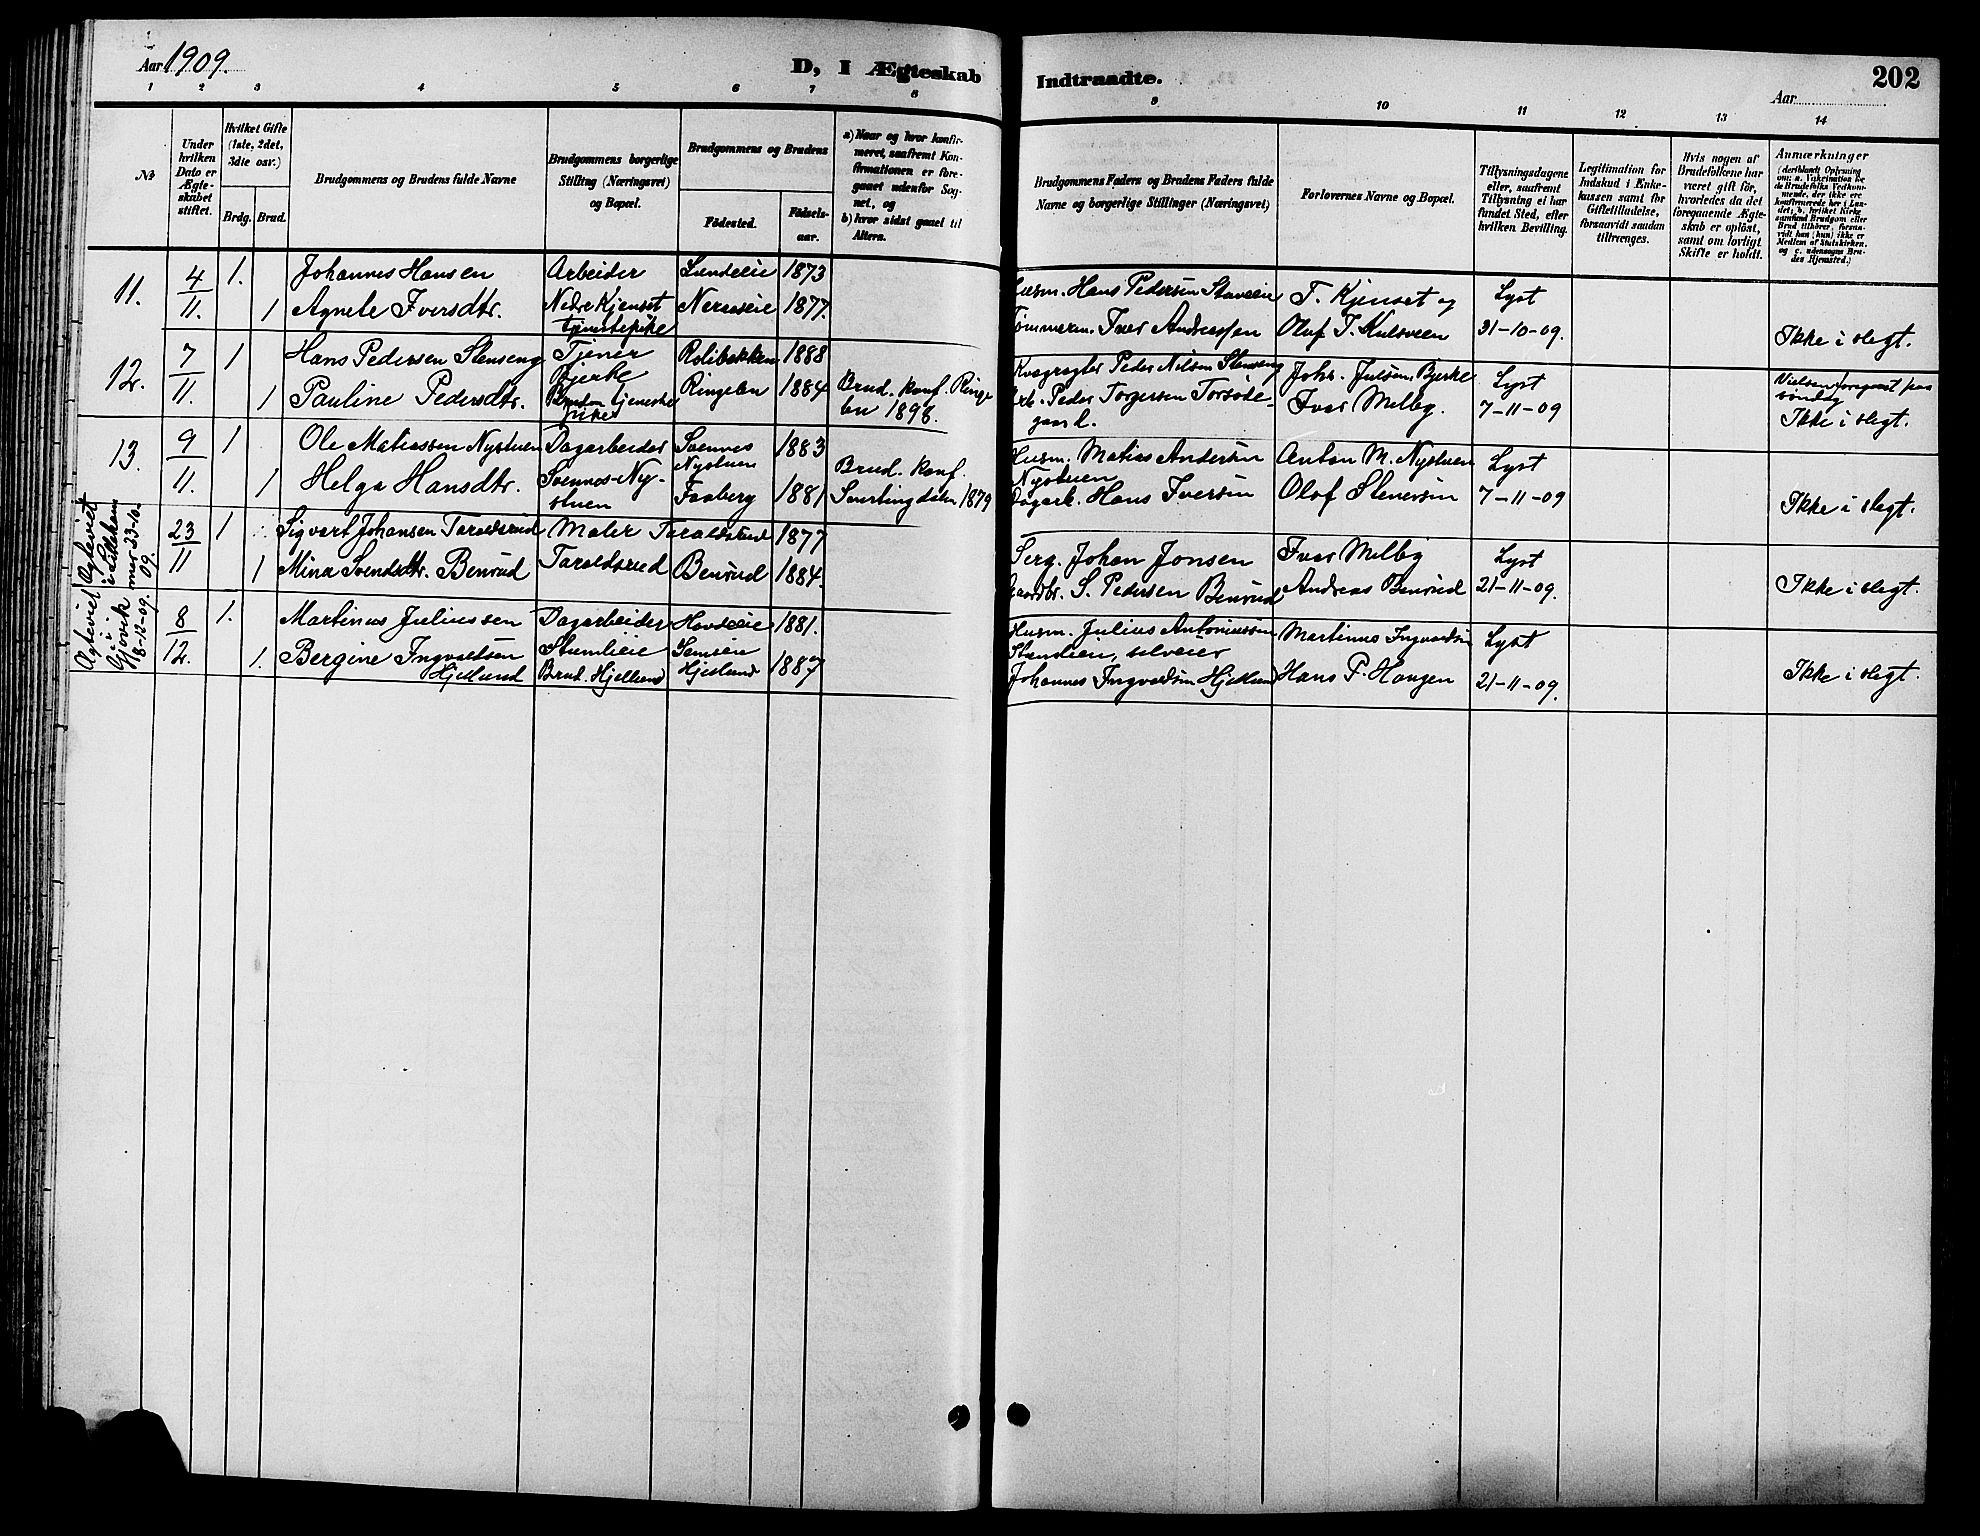 Aar 1909.
D, I Ægteskab
Indtraadte.
202
Aar
1 2 3 4 5 6 7 8 9 10 11 12 13 14
№
Under hvilken Dato er Ægteskabet stiftet.
Hvilket Gifte (1ste, 2det, 3die osv.)
Brdg. Brud.
Brudgommens og Brudens fulde Navne
Brudgommens borgerlige Stilling (Næringsvei) og Bopæl.
Brudgommens og Brudens
Födested.
Födselsaar.
a) Naar og hvor konfirmeret, saafremt Konfirmationen er foregaaet udenfor Sognet, og
b) hvor sidst gaaet til Alters.
Brudgommens Faders og Brudens Faders fulde Navne og borgerlige Stillinger (Næringsvei)
Forlovernes Navne og Bopæl.
Tillysningsdagene eller, saafremt Tillysning ei har fundet Sted, efter hvilken Bevilling.
Legitimation for Indskud i Enkekassen samt for Giftetilladelse, forsaavidt saadan tiltrænges.
Hvis nogen af Brudefolkene har været gift för, hvorledes da det foregaaende Ægteskab er oplöst, samt om lovligt Skifte er holdt.
Anmærkninger
11. 4/11. 1. Johannes Hansen Arbeider 1873
1 Agnete Iversdtr. Nedre Kjenset tjenestepike 1877
Husm. Hans Pedersen Staveeie
Tømmerm. Iver Andreassen
T. Kjenset og
Olof T. Kulsveen
Lyst
31-10-09.
Ikke i slegt.
12. 7/11. 1 Hans Pedersen Stenseng Tjener Bjerke Rolibakken 1888
1 Pauline Pedersdtr. Bruden tjenestepike Ringebu 1884 Brud. konf. Ringebu 1898.
Kvægrøgter Peder Nilsen Stenseng
Arb. Peder Torgersen Torsødegaard.
Johs. Julsen, Bjerke
Iver Melby.
Lyst
7-11-09
Vielsen foregaat paa søndag
Ikke i slegt.
13. 9/11. 1 Ole Matiassen Nystuen Dagarbeider Svennes Nystuen 1883
1 Helga Hansdtr. Svennes-Nystuen Faaberg 1881 Brud. konf. 1879
Husm. Matias Andersen Nystuen
Dagarb. Hans Iversen
Anton M. Nystuen
Olof Stenersen
Lyst
7-11-09
Ikke i slegt.
Agteviet i Lillehammer 23-10-09.
23/11 1 Sigvart Johansen Taraldsrud Maler Taraldsrud 1877
1 Mina Svendsdtr. Benrud Taraldsrud Benrud 1884.
Serg. Johan Jonsen
Gaardbr. S. Pedersen Benrud
Iver Melby
Andreas Benrud
Lyst
21-11-09.
Ikke i slegt.
Agteviet i Gjøvik 18-12-09.
8/12. 1. Martinus Juliussen Dagarbeider 1881.
1. Bergine Ingvaldsen Hjelund Brud. Hjellund Hjelund 1887
Husm. Julius Antoniussen
Johannes Ingvaldsen Hjelund
Martinus Ingvaldsen
Hans P. Haugen
Lyst
21-11-09.
Ikke i slegt.